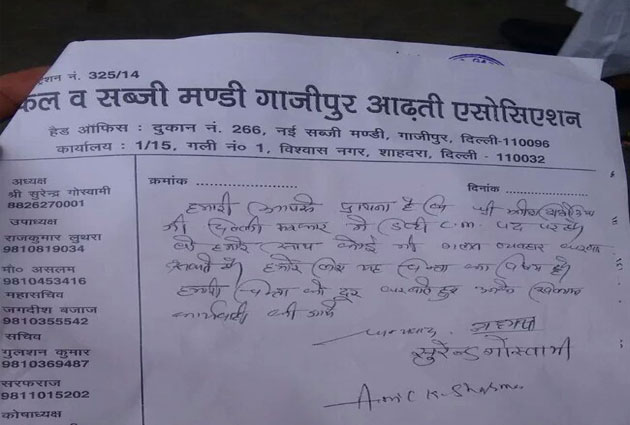 शन नं. 325/14
फल व सब्जी मण्डी गाजीपुर आढ़ती एसोसिएशन
हैड ऑफिस : दुकान नं. 266, नई सब्जी मण्डी, गाजीपुर, दिल्ली-110096
कार्यालय : 1/15, गली नं० 1, विश्वास नगर, शाहदरा, दिल्ली - 110032
अध्यक्ष
श्री सुरेन्द्र गोस्वामी
8826270001
उपाध्यक्ष
राजकुमार लुथरा
9810819034
मौ० असलम
9810453416
महासचिव
जगदीश बजाज
9810355542
सचिव
गुलशन कुमार
9810369487
सरफराज
9811015202
कोषाध्यक्ष
क्रमांक ........................ दिनांक ........................
हमारी आपसे प्रार्थना है कि श्री
जी दिल्ली सरकार में डिप्टी C.M. पद पर है
हमारे साथ कोई भी गलत व्यवहार
हमारे लिए यह चिन्ता का विषय है।
हमारी चिन्ता को दूर करते हुए उनके खिलाफ
कार्यवाही की जाये
धन्यवाद
सुरेन्द्र गोस्वामी